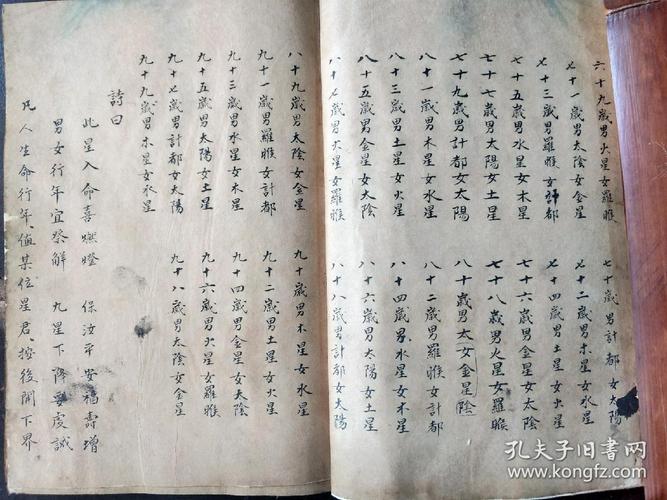 六十九歲男火星女羅睺 七十歲男計都女太陽
七十一歲男太陰女金星 七十二歲男木星女水星
七十三歲男羅睺女計都 七十四歲男土星女火星
七十五歲男水星女木星 七十六歲男金星女太陰
七十七歲男太陽女土星 七十八歲男火星女羅睺
七十九歲男計都女太陽 八十歲男太女金星陰
八十一歲男木星女水星 八十二歲男羅睺女計都
八十三歲男土星女火星 八十四歲男水星女木星
八十五歲男金星女太陰 八十六歲男太陽女土星
八十七歲男火星女羅睺 八十八歲男計都女太陽
八十九歲男太陰女金星 九十歲男木星女水星
九十一歲男羅睺女計都 九十二歲男土星女火星
九十三歲男水星女木星 九十四歲男金星女太陰
九十五歲男太陽女土星 九十六歲男火星女羅睺
九十七歲男計都女太陽 九十八歲男太陰女金星
九十九歲男木星女水星
詩曰
此星入命喜燃燈 保汝平安福壽增
男女行年宜祭解 九星下降要虔誠
凡人生命行年、值某位星君、按後開下界
孔夫子旧书网
www.kongfz.com